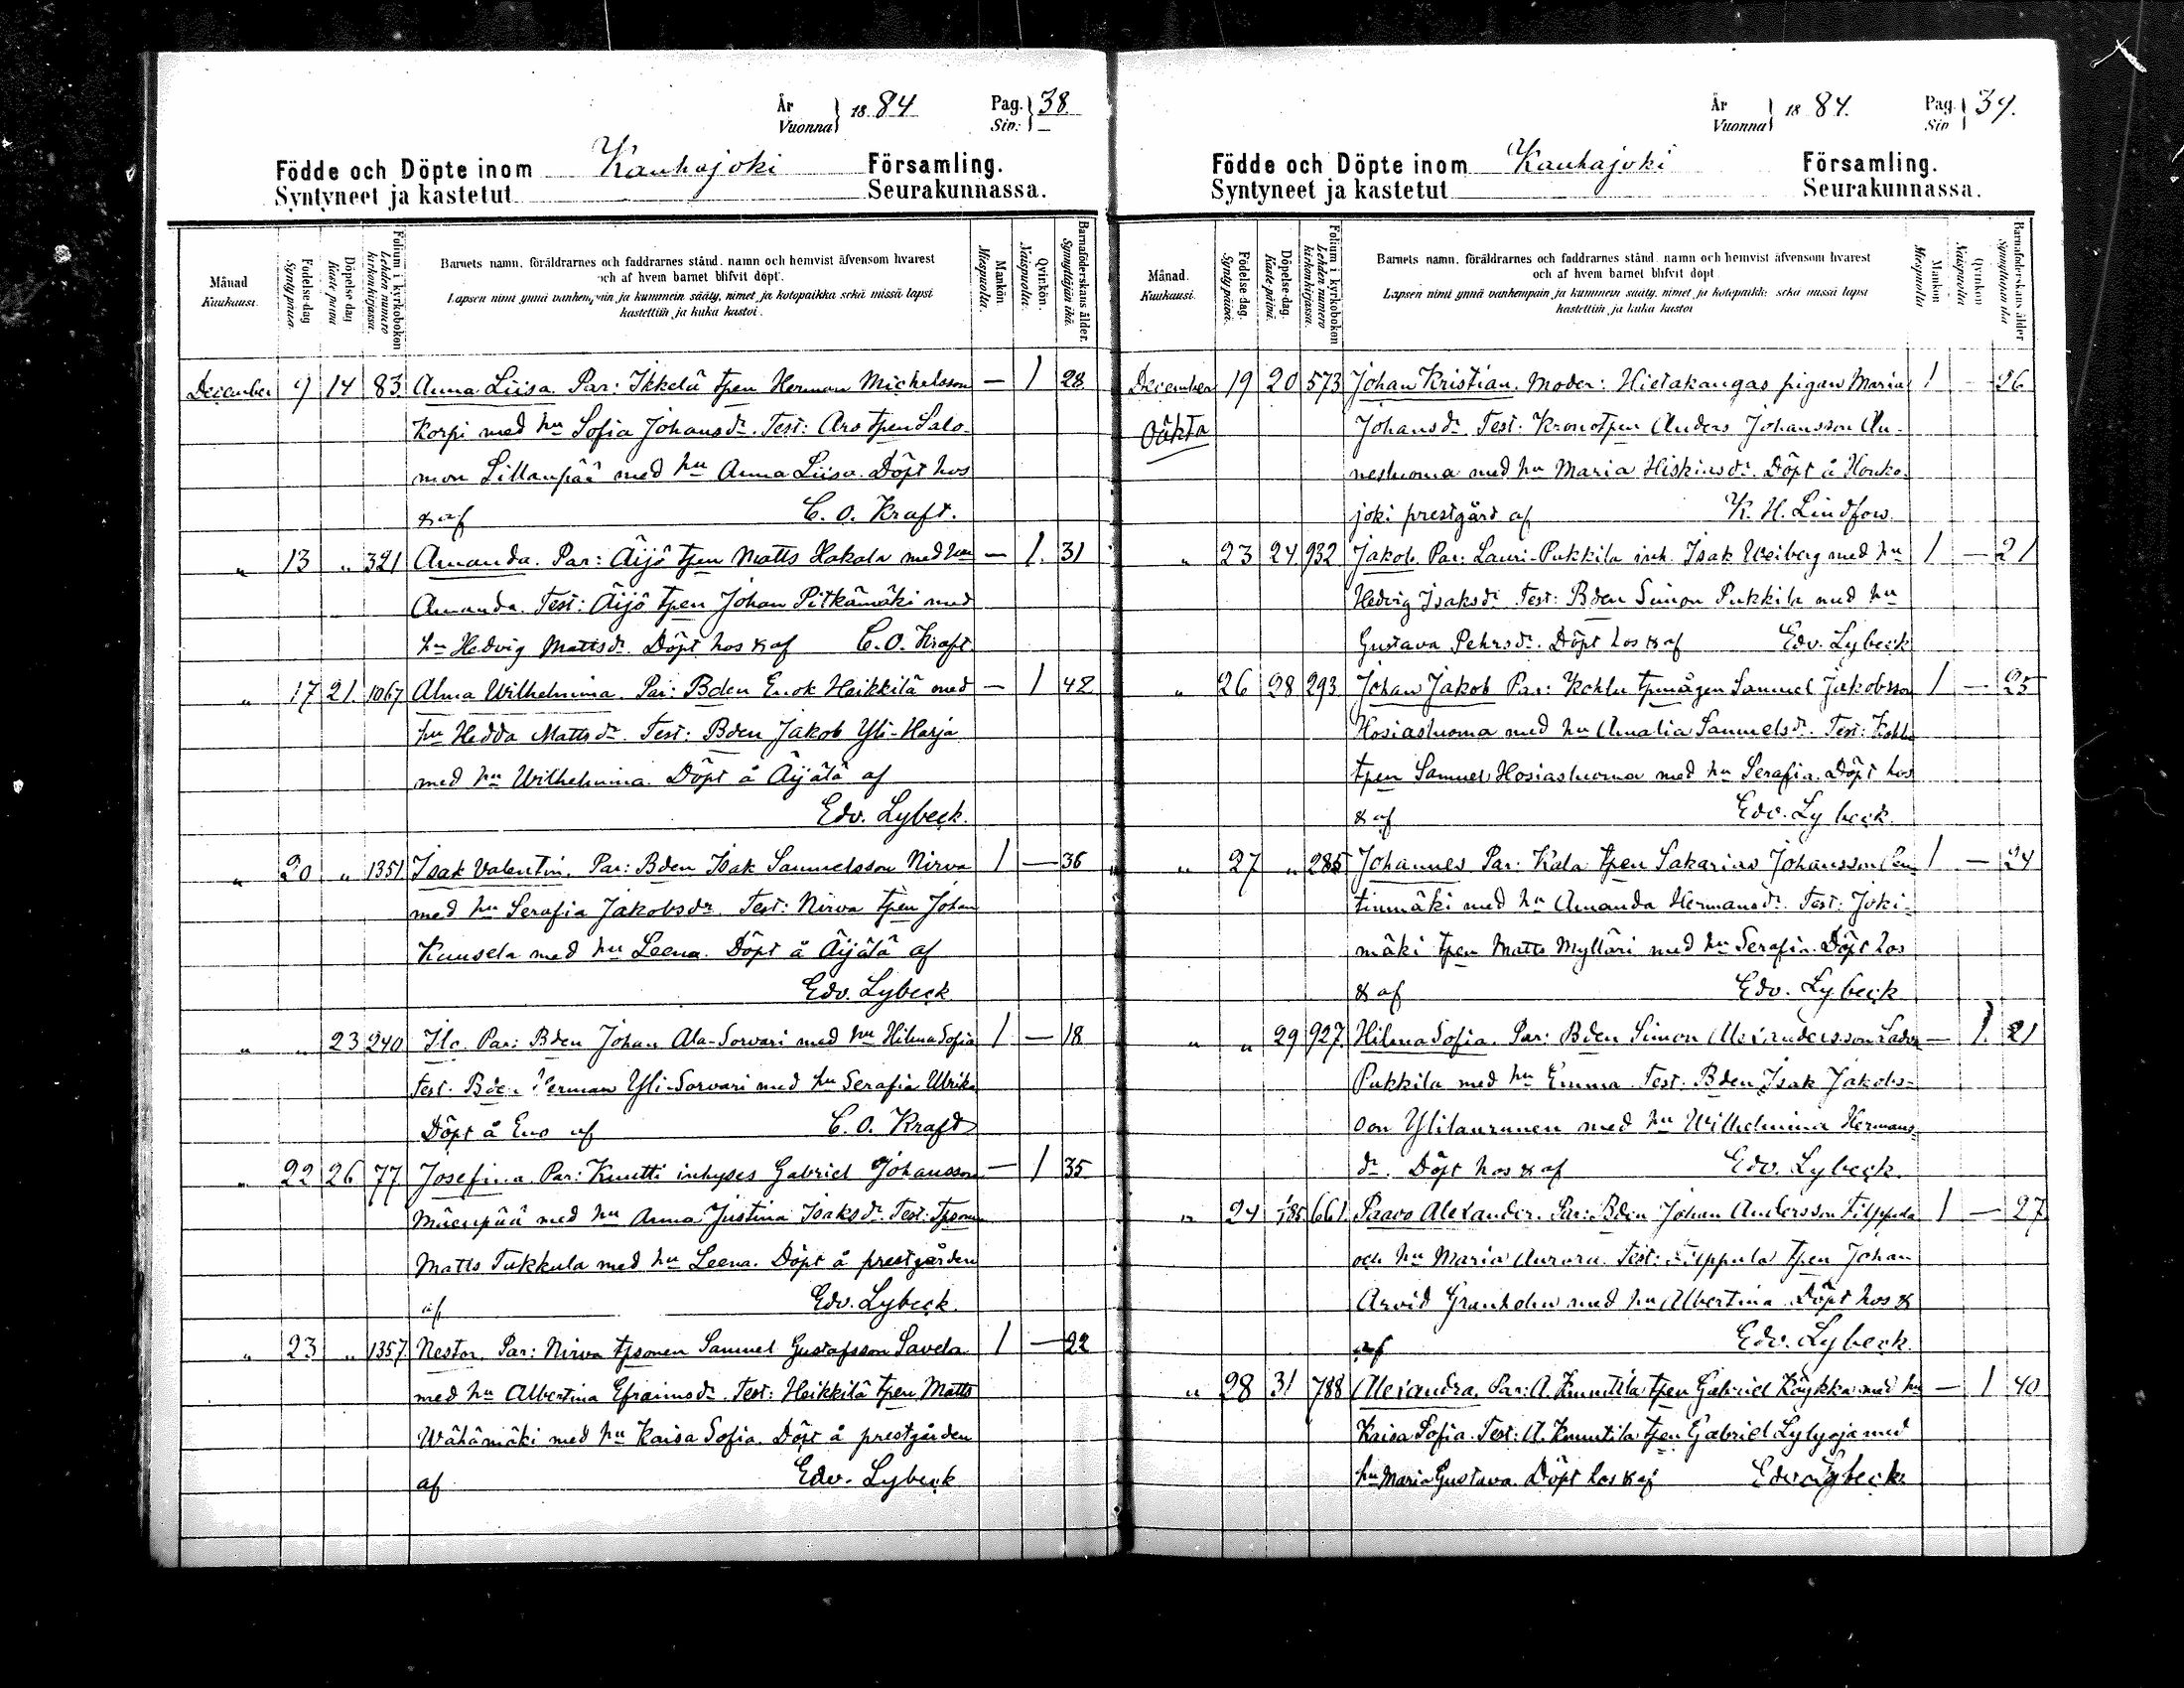 År
Vuonna } 1884 Pag.
Siv. } 38.
Födde och Döpte inom Kauhajoki Församling.
Syntyneet ja kastetut Seurakunnassa.
Månad
Kuukausi.
Födelse-dag
Syntypäivä.
Döpelse-dag
Kaste-päivä
Folium i kyrkoboken
Lehden numero
kirkonkirjassa.
Barnets namn, föräldrarnes och faddrarnes stånd, namn och hemvist äfvensom hvarest
och af hvem barnet blifvit döpt.
Lapsen nimi ynnä vanhempain ja kummein sääty, nimet ja kotopaikka sekä missä lapsi
kastettiin ja kuka kastoi.
Mankön
Miespuolia.
Qvinkön.
Naispuolia.
Barnaföderskans ålder.
Synnyttäjän ikä.
December 9 14 83 Anna Liisa. Par: Ikkelä tpen Herman Michelsson — 1 28
Korpi med hu Sofia Johansdr. Test: Aro tpen Salo-
mon Lillanpää med hu Anna Liisa. Döpt hos
& af C. O. Kraft.
" 13 " 321 Amanda. Par: Äijö tpen Matts Hakala med hu — 1. 31
Amanda. Test: Äijö tpen Johan Pitkämäki med
hu Hedvig Mattsdr. Döpt hos & af C. O. Kraft.
" 17 21. 1067 Alma Wilhelmina. Par: Bden Enok Heikkilä med — 1 42
hu Hedda Mattsdr. Test: Bden Jakob Yli-Harja
med hu Wilhelmina. Döpt å Äijälä af
Edv. Lybeck.
" 20 " 1351 Isak Valentin. Par: Bden Isak Samuelsson Nirva 1 — 36
med hu Serafia Jakobsdr. Test: Nirva tpen Johan
Kuusela med hu Leena. Döpt å Äijälä af
Edv. Lybeck
" " 23 240 Ilo. Par: Bden Johan Ala-Sorvari med hu Hilma Sofia 1 — 18
Test. Bden Herman Yli-Sorvari med hu Serafia Ulrika
Döpt å Eno af C. O. Kraft
" 22 26 77 Josefina. Par: Knutti inhyses Gabriel Johansson — 1 35
Mäenpää med hu Anna Justina Isaksdr. Test: Tpson
Matts Tukkula med hu Leena. Döpt å prestgården
af Edv. Lybeck.
" 23 " 1357 Nestor. Par: Nirva tpsonen Samuel Gustafsson Savela 1 — 22
med hu Albertina Efraimsdr. Test: Heikkilä tpen Matts
Wähämäki med hu Kaisa Sofia. Döpt å prestgården
af Edv. Lybeck
År
Vuonna } 1884. Pag.
Siv } 39.
Födde och Döpte inom Kauhajoki Församling.
Syntyneet ja kastetut Seurakunnassa.
Månad.
Kuukausi.
Födelse-dag.
Syntypäivä.
Döpelse-dag.
Kaste-päivä.
Folium i kyrkoboken
Lehden numero
kirkonkirjassa.
Barnets namn, föräldrarnes och faddrarnes stånd, namn och hemvist äfvensom hvarest
och af hvem barnet blifvit döpt
Lapsen nimi ynnä vanhempain ja kummein sääty, nimet ja kotopaikka sekä missä lapsi
kastettiin ja kuka kastoi
Mankön
Miespuolia
Qvinkön
Naispuolia
Barnaföderskans ålder
Synnyttäjän ikä
December 19 20 573 Johan Kristian. Moder: Hietakangas pigan Maria 1 — 26
Oäkta Johansdr. Test. Kronotpen Anders Johansson An-
nesluoma med hu Maria Hiskiasdr. Döpt å Honko-
joki prestgård af K. H. Lindfors.
" 23 24 932 Jakob. Par: Lauri-Pukkila inh. Isak Weiberg med hu 1 — 21
Hedvig Isaksdr. Test: Bden Simon Pukkila med hu
Gustava Pehrsdr. Döpt hos & af Edv. Lybeck
" 26 28 293 Johan Jakob Par: Kohlu tpmågen Samuel Jakobsson 1 — 25
Hosiasluoma med hu Amalia Samuelsdr. Test: Kohlu
tpen Samuel Hosiasluoma med hu Serafia. Döpt hos
& af Edv. Lybeck.
" 27 " 285 Johannes Par: Kala tpen Sakarias Johansson Pen- 1 — 24
tinmäki med hu Amanda Hermansdr. Test: Joki-
mäki tpen Matts Mylläri med hu Serafia. Döpt hos
& af Edv. Lybeck
" " 29 927. Hilma Sofia. Par: Bden Simon Alexandersson — 1. 21
Pukkila med hu Emma. Test: Bden Isak Jakobs-
son Ylilaurunen med hu Wilhelmina Hermans-
dr. Döpt hos & af Edv. Lybeck.
" 24 661. Paavo Alexander. Par: Bden Johan Andersson Filppula 1 — 27
och hu Maria Aurora. Test: Filppula tpen Johan
Arvid Granholm med hu Albertina. Döpt hos &
af Edv. Lybeck.
" 28 31 788 Alexandra. Par: A. Knuutila tpen Gabriel Köykkä med hu — 1 40
Kaisa Sofia. Test: A. Knuutila tpen Gabriel Lylyoja med
hu Maria Gustava. Döpt hos & af Edv. Lybeck